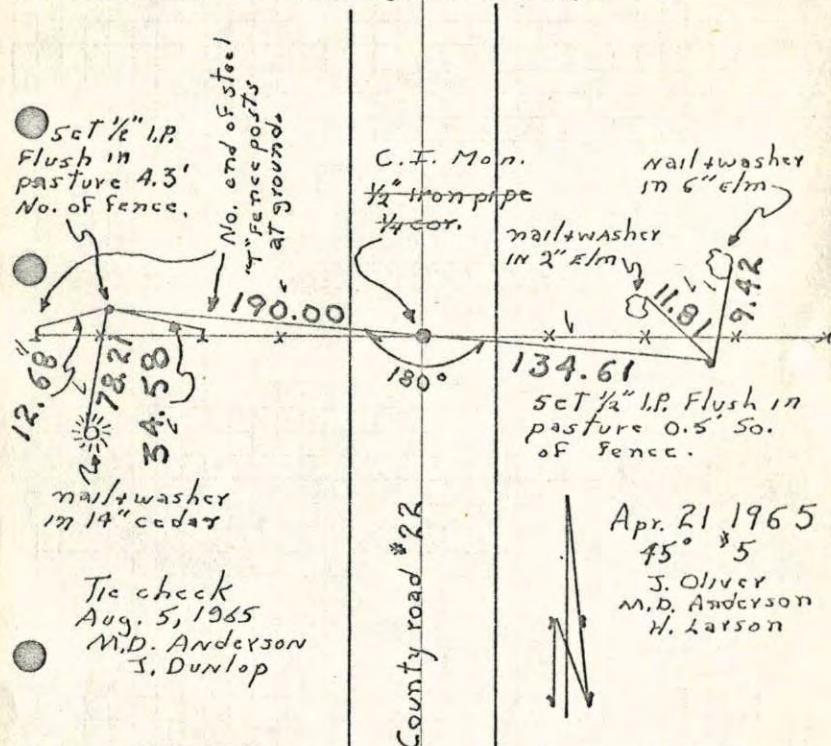 Set 1/2" I.P.
Flush in
pasture 4.3'
No. of fence.
No. end of steel
"T" fence posts
at ground.
C. I. Mon.
1/2" iron pipe
1/4 cor.
nail+washer
in 6" Elm
nail+washer
in 2" Elm
190.00
11.81
9.42
180°
134.61
12.68
78.21
34.58
Set 1/2" I.P. Flush in
pasture 0.5' So.
of fence.
nail+washer
in 14" cedar
County road #22
Tie check
Aug. 5, 1965
M.D. Anderson
J. Dunlop
Apr. 21 1965
45° #5
J. Oliver
M.D. Anderson
H. Larson
N